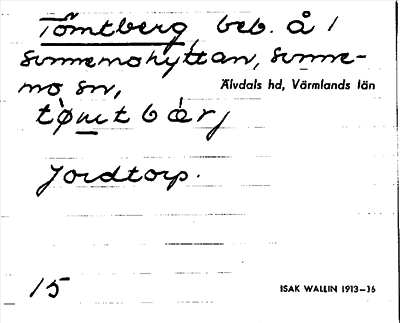 Tömtberg, beb. å /
Sunnemohyttan, Sunne-
mo sn, Älvdals hd, Värmlands län
tømt bærj
Jordtorp.
15 ISAK WALLIN 1913–16